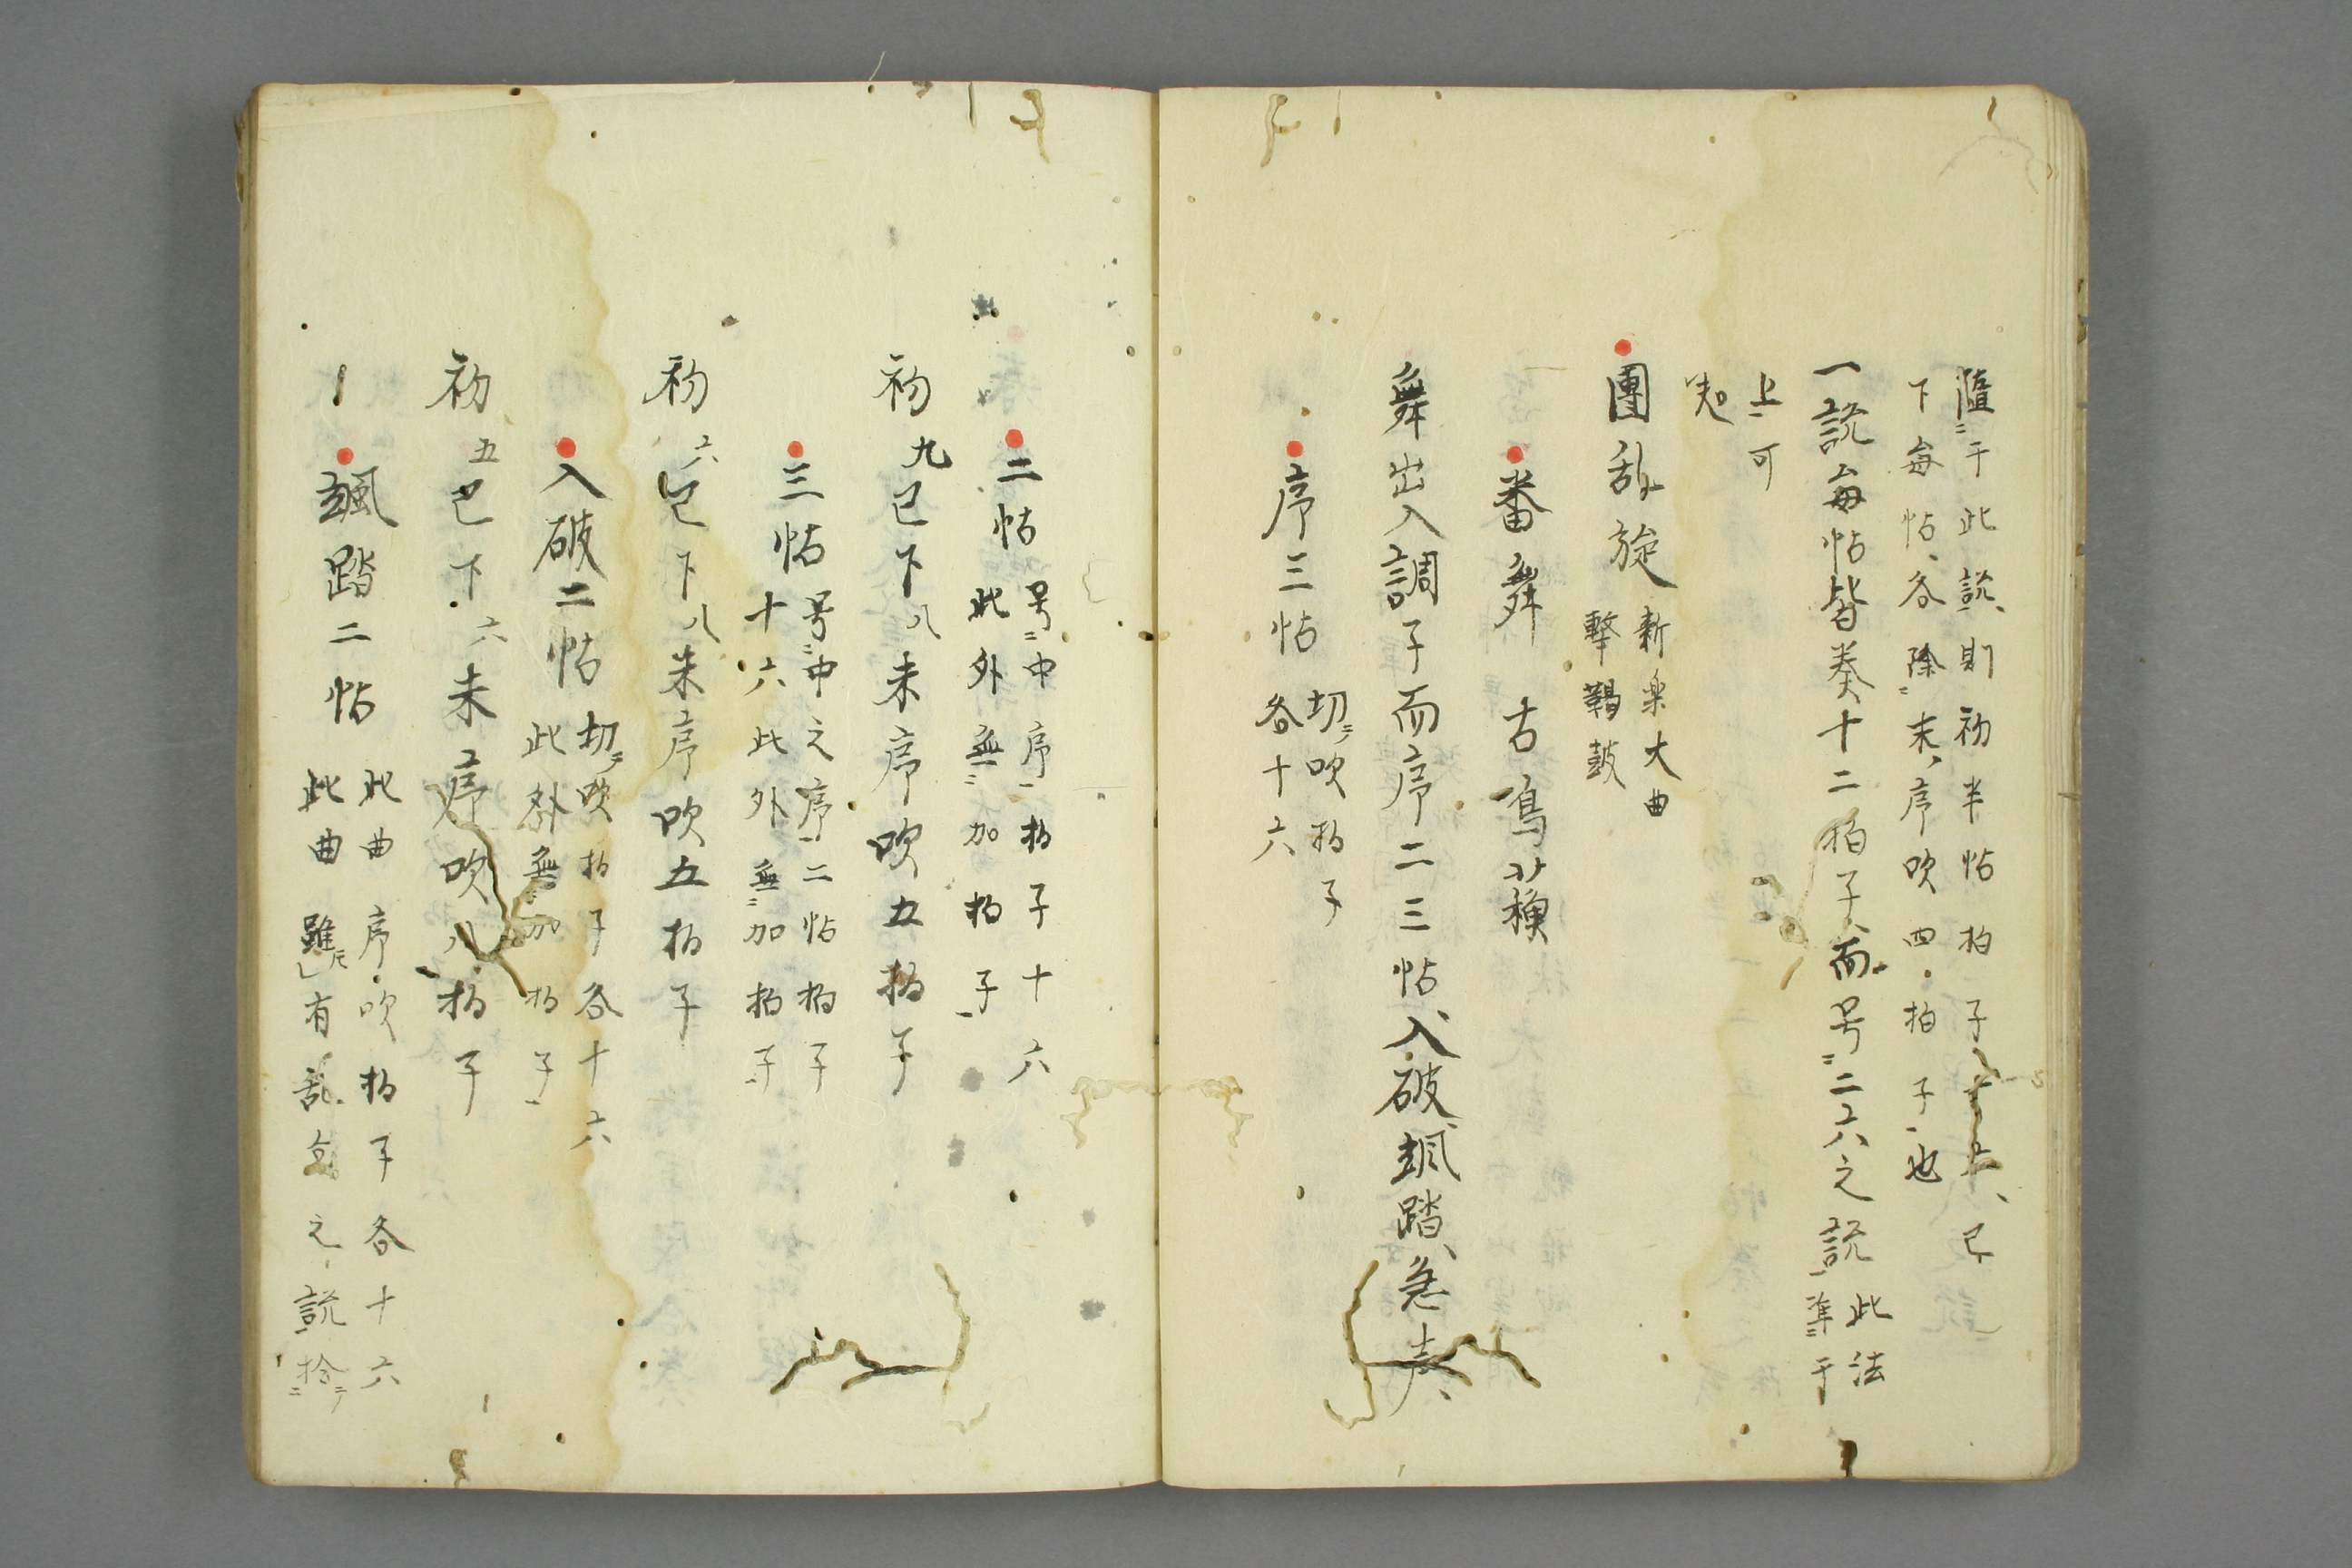 随于此説、則初半帖拍子十六、已
下毎帖、各除末、序吹四拍子也
一説毎帖皆奏十二拍子、而号二六之説
此法
準于
上可
知
團乱旋
新楽大曲
撃鞨鼓
番舞 古鳥蘓
舞出入調子而序二三帖、入破、颯踏、急声、
序三帖
切吹拍子
各十六
二帖
号中序拍子十六
此外無加拍子
初九已下八末序吹五拍子
三帖
号中之序二帖拍子
十六此外無加拍子
初六已下八末序吹五拍子
入破二帖
切吹拍子各十六
此外無加拍子
初五已下六末序吹八拍子
颯踏二帖
此曲序吹拍子各十六
此曲雖有乱之説拾